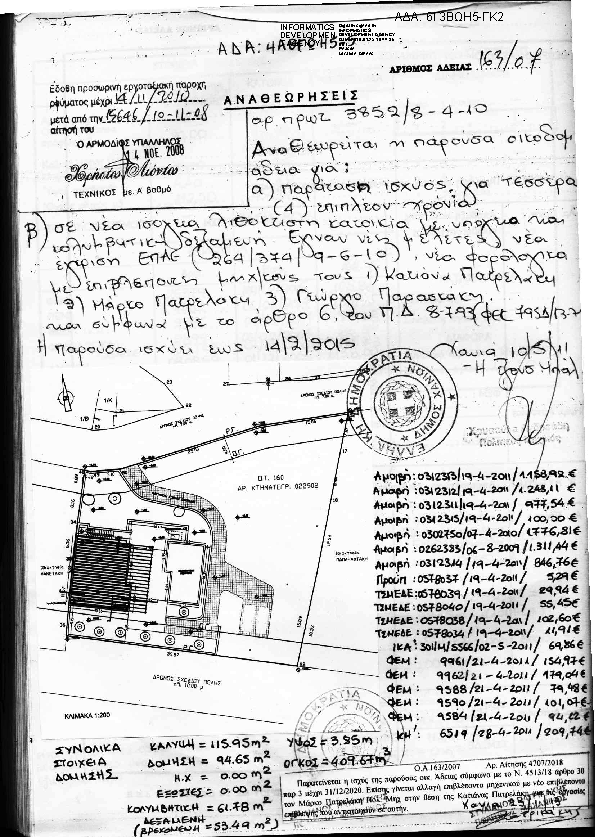 ΑΔΑ: 6Γ3ΒΩΗ5-ΓΚ2
INFORMATICS
DEVELOPMEN
ΑΡΙΘΜΟΣ ΑΔΕΙΑΣ 163/07
Εδόθη προσωρινή εργοταξιακή παροχή
ρεύματος μέχρι 14/11/2010
μετά από την 15646/10-11-08
αίτησή του
Ο ΑΡΜΟΔΙΟΣ ΥΠΑΛΛΗΛΟΣ
14 ΝΟΕ. 2008
ΤΕΧΝΙΚΟΣ με Α΄ βαθμό
ΑΝΑΘΕΩΡΗΣΕΙΣ
αρ. πρωτ 3852/8-4-10
Αναθεωρείται η παρούσα οικοδομ
άδεια για:
α) παράταση ισχύος για τέσσερα
(4) επιπλέον χρόνια
Β) σε νέα ισόγεια λιθόκτιστη κατοικία με υπόγειο και
κολυμβητική δεξαμενή. Έγιναν νέες μελέτες, νέα
έγκριση ΕΠΑΕ (264/374/9-6-10), νέα φορολογικά
με επιβλέποντες μηχ/κούς τους 1) Κατίνα Πατρελάκη
2) Μάρκο Πατρελάκη, 3) Γεώργιο Παρασκάκη
και σύμφωνα με το άρθρο 6, του Π.Δ. 8-7-93
Η παρούσα ισχύει έως 14/2/2015
Χανιά 10/5/11
ΕΛΛΗΝΙΚΗ ΔΗΜΟΚΡΑΤΙΑ
ΔΗΜΟΣ ΧΑΝΙΩΝ
Ρ.Γ.
Β.Γ.
Ο.Τ. 160
ΑΡ. ΚΤΗΜΑΤΟΓΡ. 022502
ΚΛΙΜΑΚΑ 1:200
Αμοιβή: 0312313/19-4-2011/1.158,92 €
Αμοιβή: 0312312/19-4-2011/1.243,11 €
Αμοιβή: 0312311/19-4-2011/977,54 €
Αμοιβή: 0312315/19-4-2011/100,00 €
Αμοιβή: 0302750/07-4-2010/1776,81 €
Αμοιβή: 0262383/06-8-2009/1.311,44 €
Αμοιβή: 0312314/19-4-2011/846,76 €
Προϋπ: 0578037/19-4-2011/5,29 €
ΤΣΜΕΔΕ: 0578039/19-4-2011/29,94 €
ΤΣΜΕΔΕ: 0578040/19-4-2011/55,45 €
ΤΣΜΕΔΕ: 0578038/19-4-2011/102,60 €
ΤΣΜΕΔΕ: 0578034/19-4-2011/21,91 €
ΙΚΑ: 301/Μ/5566/02-5-2011/69,86 €
ΦΕΜ: 9961/21-4-2011/154,97 €
ΦΕΜ: 9962/21-4-2011/179,04 €
ΦΕΜ: 9588/21-4-2011/79,98 €
ΦΕΜ: 9590/21-4-2011/101,07 €
ΦΕΜ: 9584/21-4-2011/94,22 €
ΚΗ: 6519/28-4-2011/209,74 €
ΣΥΝΟΛΙΚΑ ΣΤΟΙΧΕΙΑ ΔΟΜΗΣΗΣ
ΚΑΛΥΨΗ = 115.95 m² ΥΨΟΣ = 3.85 m
ΔΟΜΗΣΗ = 94.65 m² ΟΓΚΟΣ = 409.67 m³
Η.Χ = 0.00 m²
ΕΞΩΣΤΕΣ = 0.00 m²
ΚΟΛΥΜΒΗΤΙΚΗ = 61.78 m²
ΔΕΞΑΜΕΝΗ
(ΒΡΕΧΟΜΕΝΗ = 53.49 m²)
Ο.Α 163/2007 Αρ. Αίτησης 4707/2018
Παρατείνεται η ισχύς της παρούσας οικ. Άδειας σύμφωνα με το Ν. 4513/18 άρθρο 30
παρ 3 μέχρι 31/12/2020. Επίσης γίνεται αλλαγή επιβλέποντα μηχανικού με νέο επιβλέποντα
τον Μάρκο Πατρελάκη Πολ. Μηχ στην θέση της Κατίνας Πατρελάκη για τις εργασίες
επιβλεψής που αντιστοιχούν σε αυτήν.